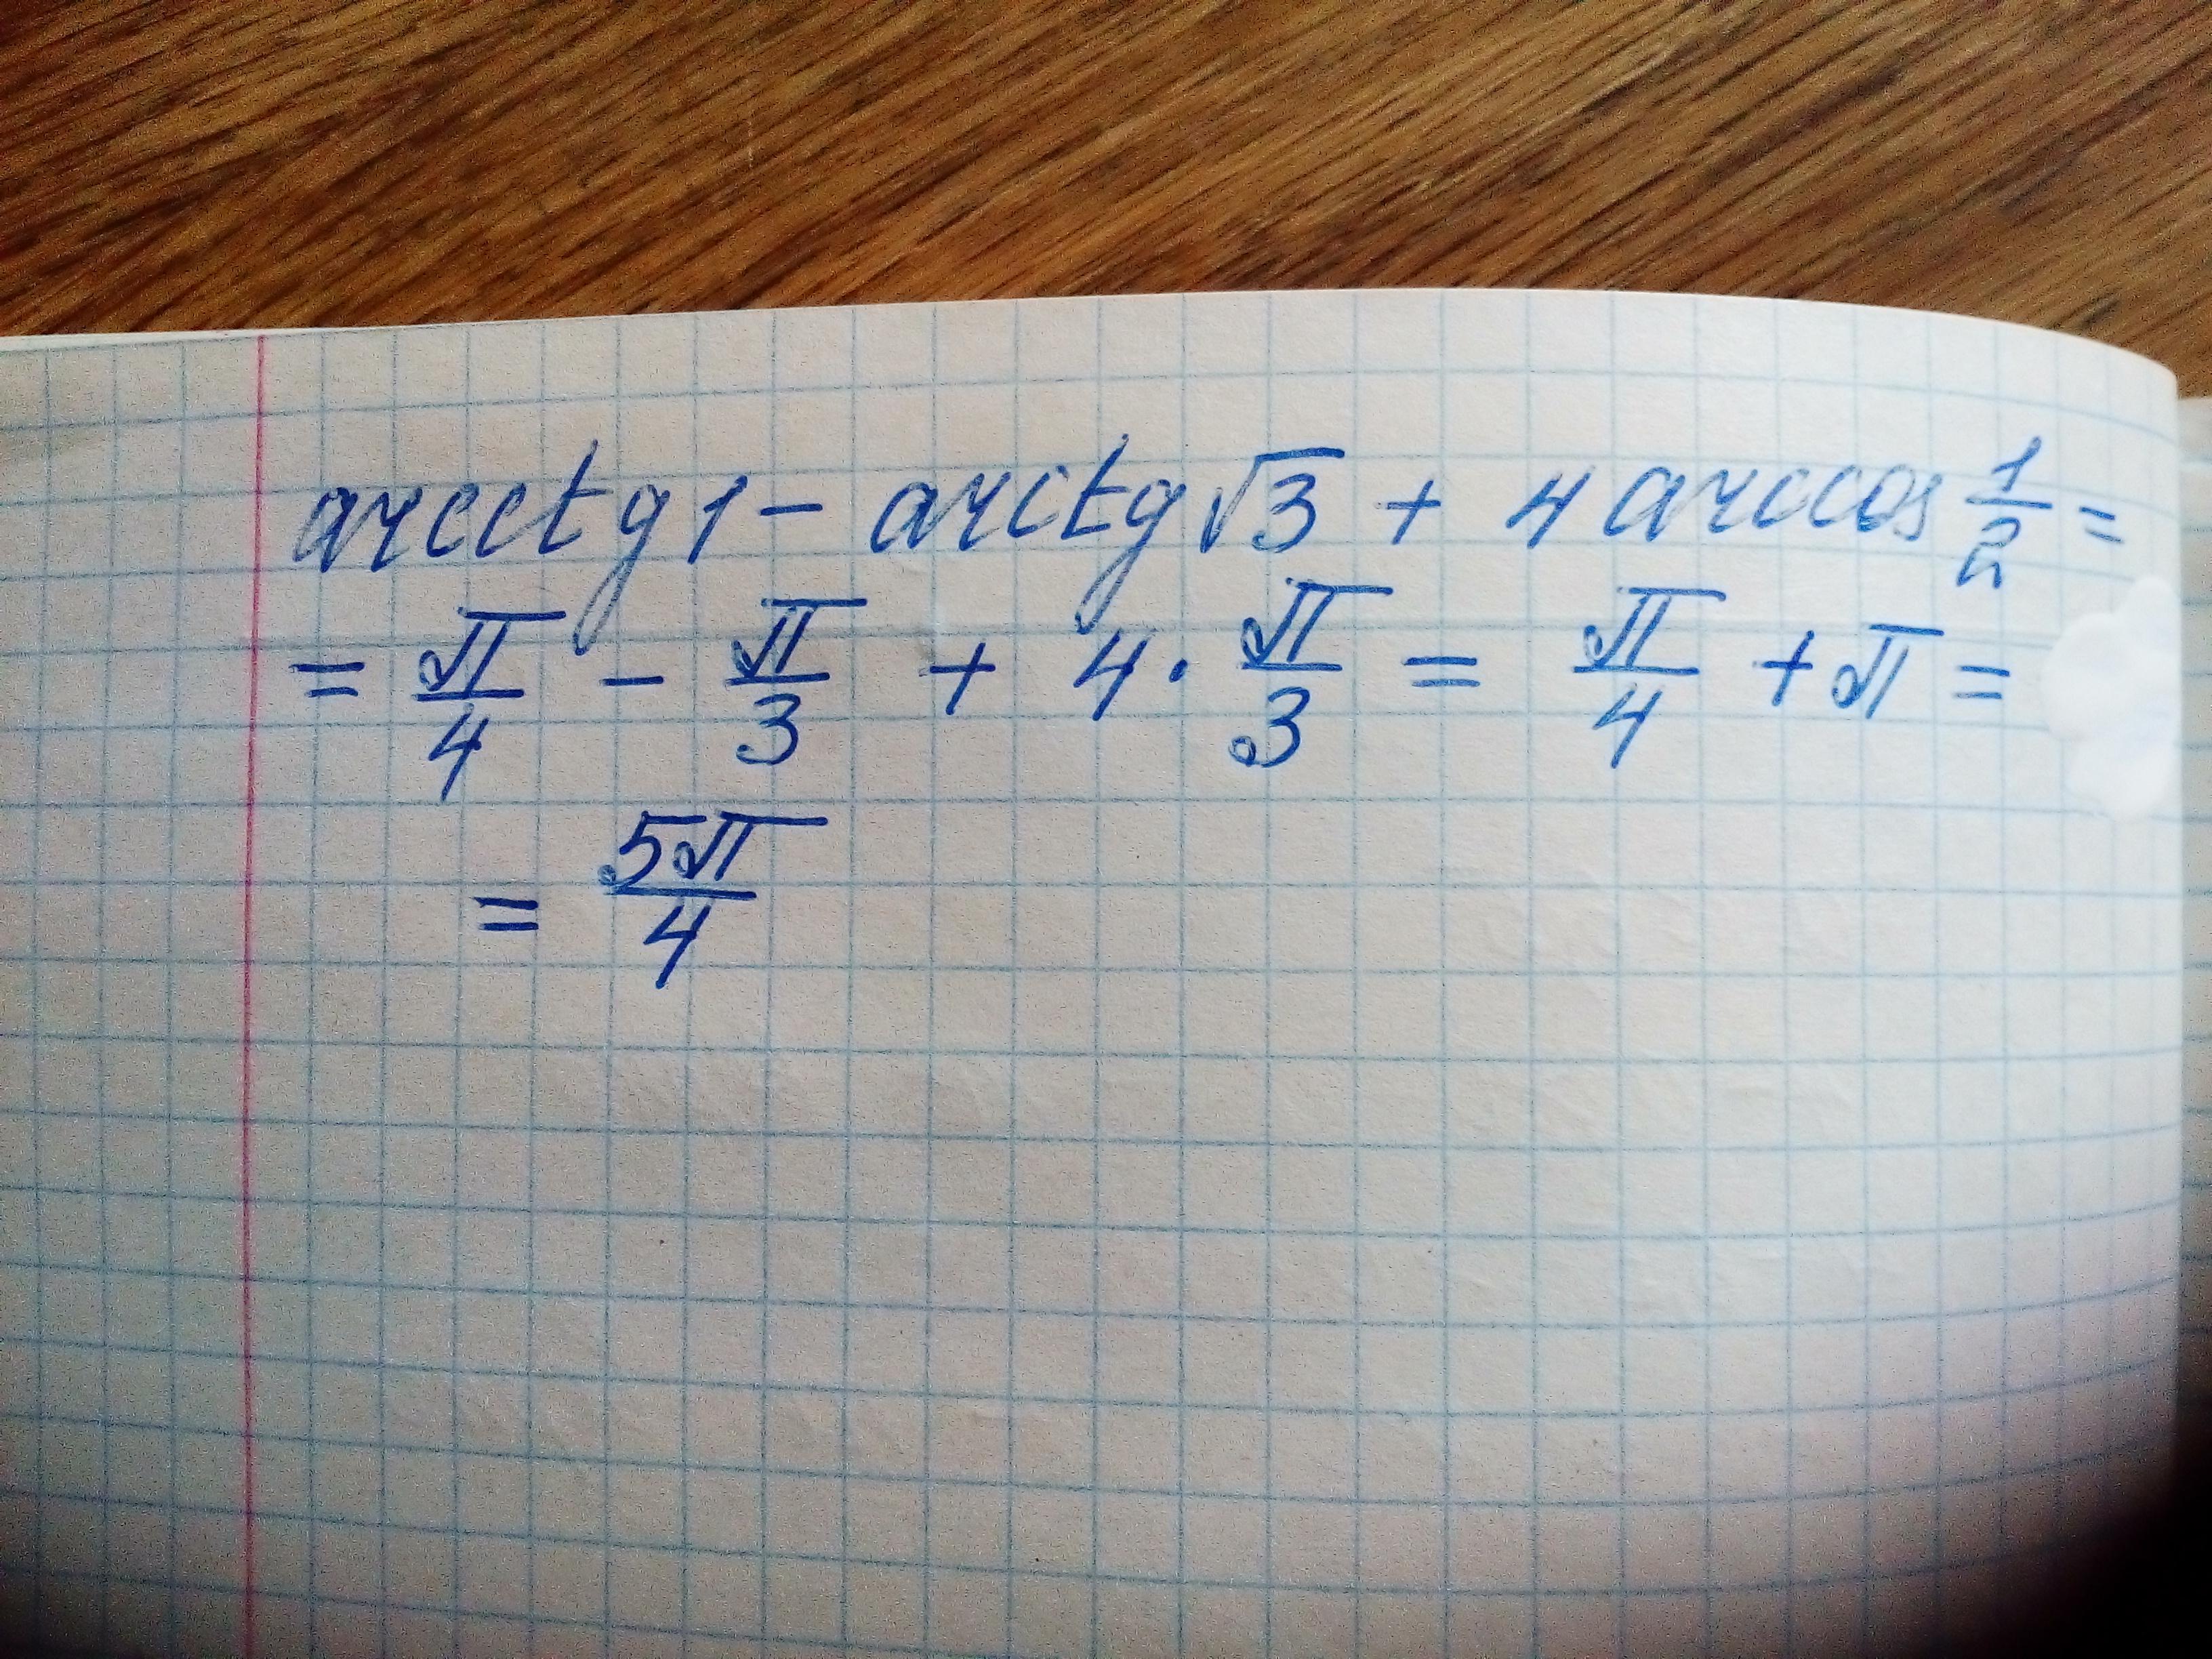 arcctg 1 − arctg √3 + 4 arccos 1/2 =
= π/4 − π/3 + 4 · π/3 = π/4 + π =
= 5π/4